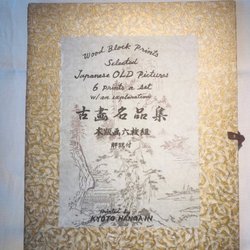 Wood Block Prints
Selected
Japanese OLD Pictures
6 prints a set
w/an explanation
古畫名品集
木版画六枚組
解説付
printed by
KYOTO HANGA IN